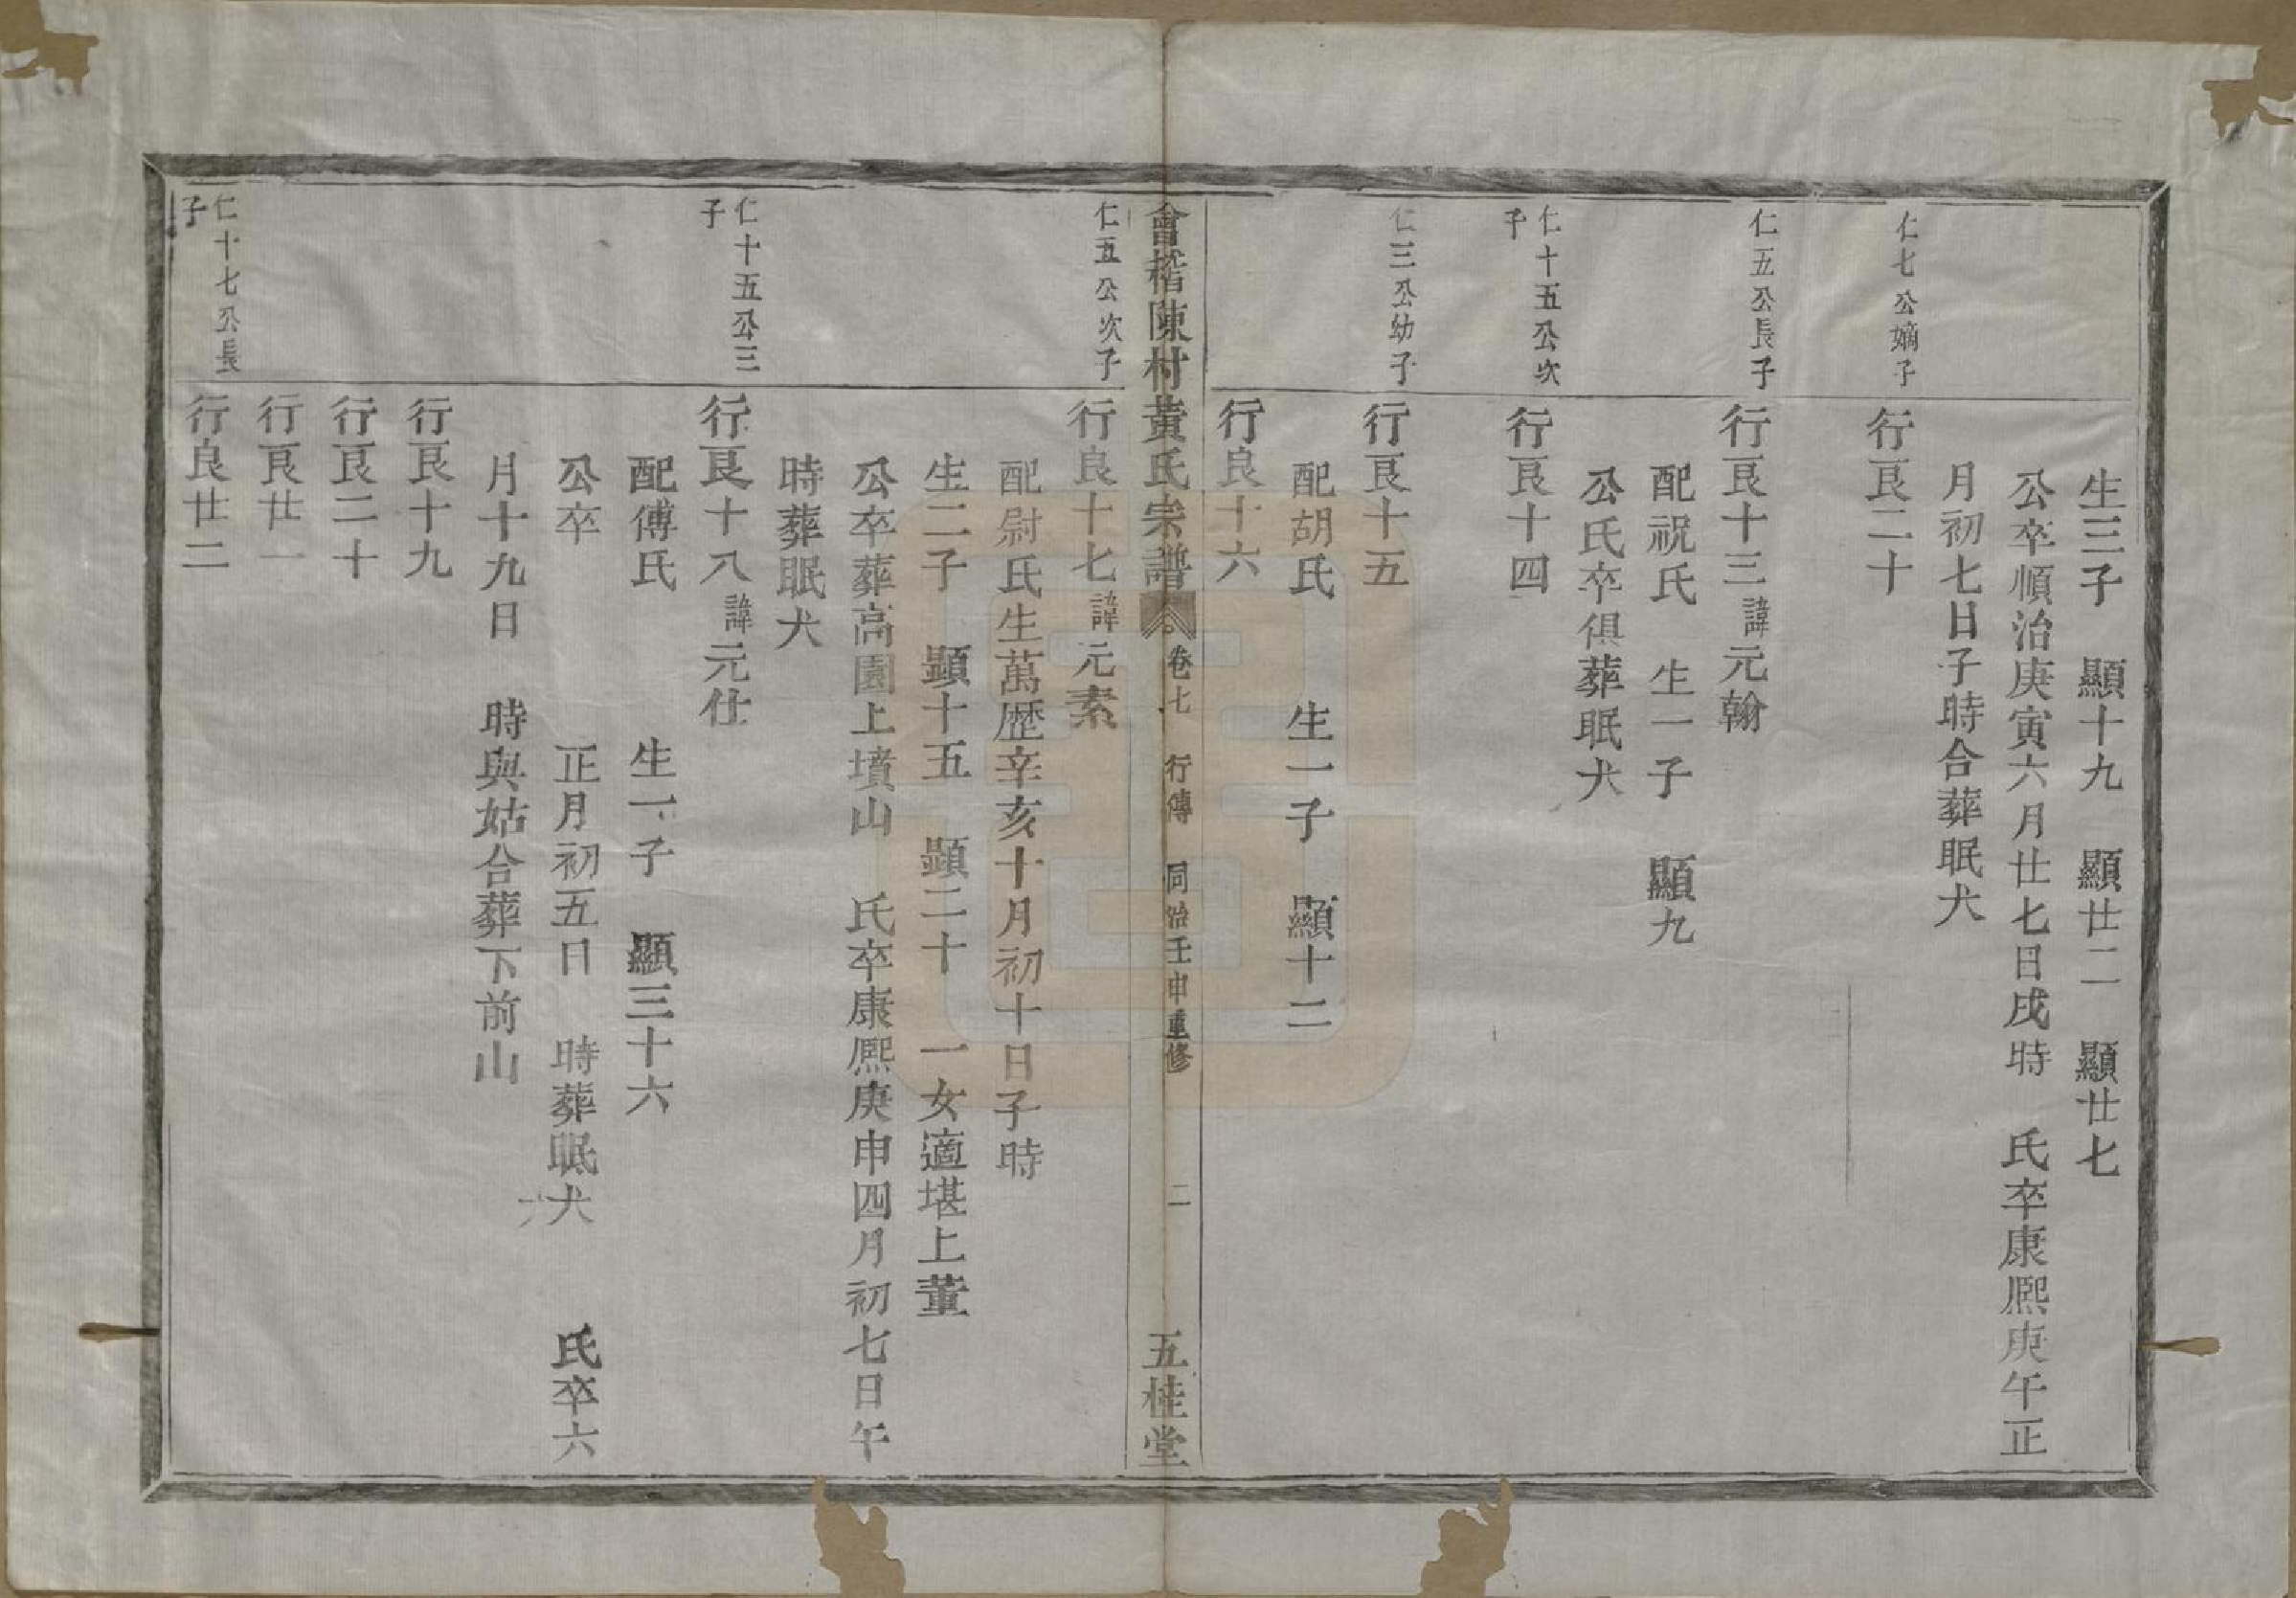 生三子　顯十九　顯廿二　顯廿七
公卒順治庚寅六月廿七日戌時　氏卒康熙庚午正
月初七日子時合葬眠犬
仁七公嫡子
行良二十
仁五公長子
行良十三諱元翰
配祝氏　生一子　顯九
公氏卒俱葬眠犬
仁十五公次
子
行良十四
仁三公幼子
行良十五
配胡氏　生一子　顯十二
行良十六
會稽陳村黃氏宗譜　卷七　行傳　同治壬申重修　二　五桂堂
仁五公次子
行良十七諱元素
配尉氏生萬歷辛亥十月初十日子時
生二子　顯十五　顯二十　一女適堪上董
公卒葬高園上墳山　氏卒康熙庚申四月初七日午
時葬眠犬
仁十五公三
子
行良十八諱元仕
配傅氏　生一子　顯三十六
公卒　正月初五日　時葬眠犬　氏卒六
月十九日　時與姑合葬下前山
行良十九
行良二十
行良廿一
仁十七公長
子
行良廿二